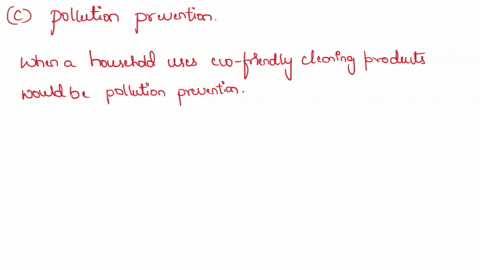 (c) pollution prevention.
When a household uses eco-friendly cleaning products
would be pollution prevention.